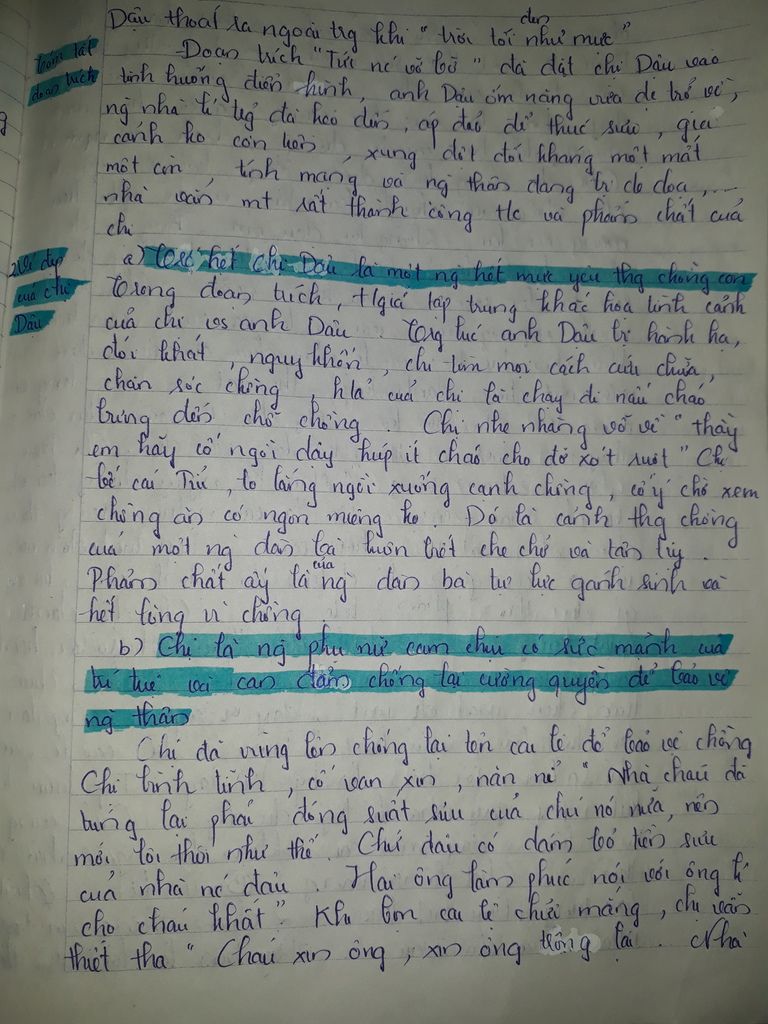 Dậu thoát ra ngoài trg khi " trời tối đen như mực "
tóm tắt
đoạn trích
- Đoạn trích " Tức nc vỡ bờ " đã đặt chị Dậu vào
tình huống điển hình, anh Dậu ốm nặng vừa đc trở về,
ng nhà lí trg đã kéo đến, áp đảo để thúc sưu, gia
cảnh ko còn , xung đột đối kháng một mất
một còn, tính mạng và ng thân đang bị đe dọa, ...
nhà văn mt rất thành công tlc và phẩm chất của
chị
2. Vẻ đẹp
của chị
Dậu
a) Trc hết chị Dậu là một ng hết mực yêu thg chồng con
Trong đoạn trích, tgiả tập trung khắc họa tình cảnh
của chị vs anh Dậu. Trg lúc anh Dậu bị hành hạ,
đói khát, nguy khốn, chị tìm mọi cách cứu chữa,
chăm sóc chồng, của chị là chạy đi nấu cháo
bưng đến chỗ chồng. Chị nhẹ nhàng vỗ về " thầy
em hãy cố ngồi dậy húp ít cháo cho đỡ xót ruột " Chị
bế cái Tỉu, lo lắng ngồi xuống cạnh chồng, cố ý chờ xem
chồng ăn có ngon miệng ko. Đó là cảnh thg chồng
của một ng đàn bà luôn biết che chở và tận tụy.
Phẩm chất ấy là của ng đàn bà tự lực gánh sinh và
hết lòng vì chồng
b) Chị là ng phụ nữ cam chịu có sức mạnh của
trí tuệ và can đảm chống lại cường quyền để bảo vệ
ng thân
Chị đã vùng lên chống lại tên cai lệ để bảo vệ chồng
Chị bình tĩnh, cố van xin, năn nỉ " Nhà cháu đã
túng lại phải đóng suất sưu của chú nó nữa, nên
mới lôi thôi như thế. Chứ đâu có dám bỏ tiền sưu
của nhà nc đâu. Hai ông làm phúc nói với ông lí
cho cháu khất ". Khi bọn cai lệ chửi mắng, chị vẫn
thiết tha " Cháu xin ông, xin ông trông lại. Nhà